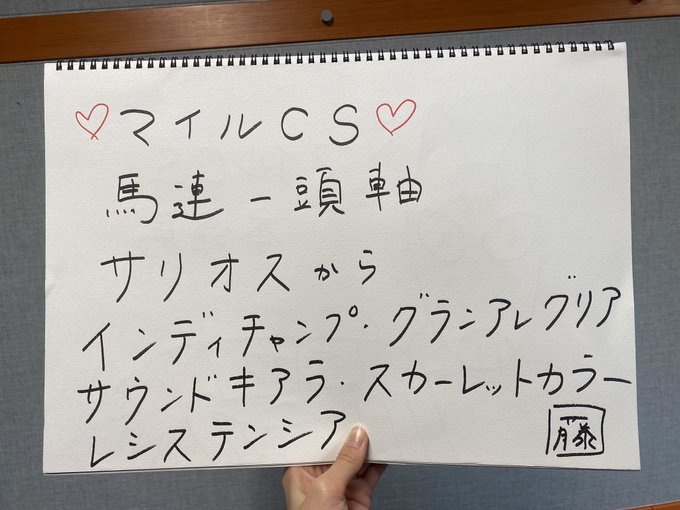 ♡マイルCS♡
馬連一頭軸
サリオスから
インディチャンプ・グランアレグリア
サウンドキアラ・スカーレットカラー
レシステンシア
藤